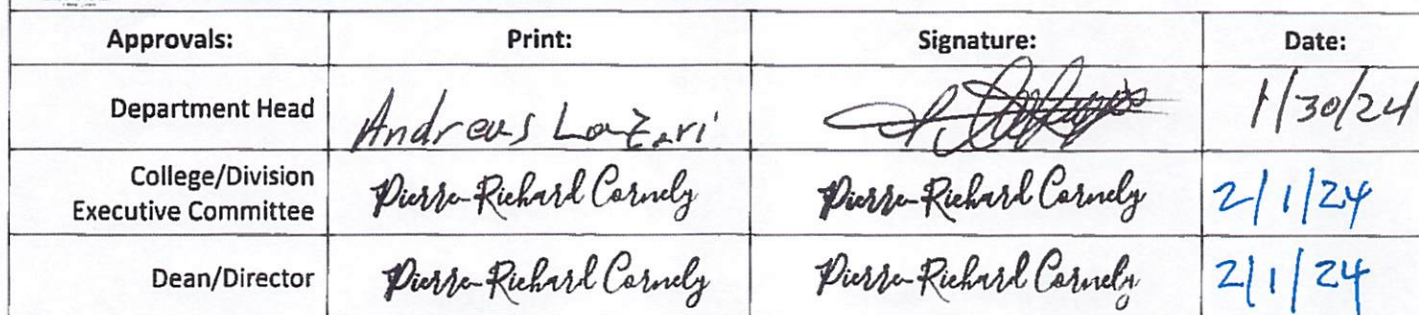 Approvals: Print: Signature: Date:
Department Head Andreas Lazari 1/30/24
College/Division
Executive Committee Pierre-Richard Cornely Pierre-Richard Cornely 2/1/24
Dean/Director Pierre-Richard Cornely Pierre-Richard Cornely 2/1/24